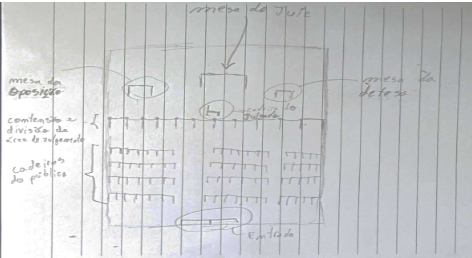 mesa do Juiz
mesa da
oposição
mesa da
defesa
contensão e
divisão da
área do Julgamento
cadeiras
do público
Entrada